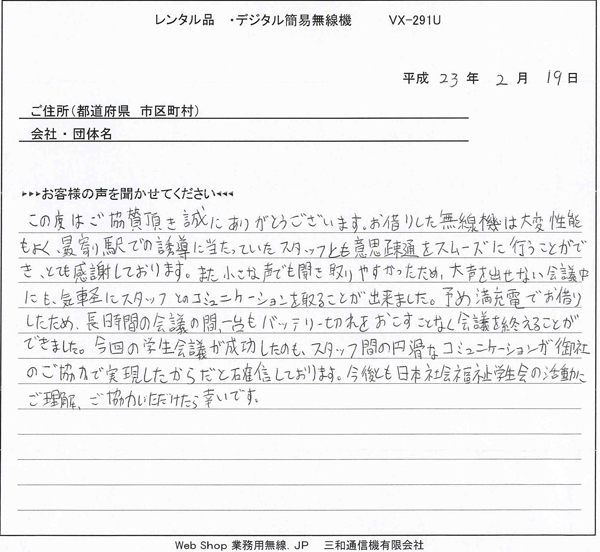 レンタル品 ・デジタル簡易無線機 VX-291U
平成 23 年 2 月 19 日
ご住所(都道府県 市区町村)
会社・団体名
▸▸▸お客様の声を聞かせてください◂◂◂
この度はご協賛頂き誠にありがとうございます。お借りした無線機は大変性能
もよく、最寄り駅での誘導に当たっていたスタッフとも意思疎通をスムーズに行うことがで
き、とても感謝しております。また小さな声でも聞き取りやすかったため、大声を出せない会議中
にも、気軽にスタッフとのコミュニケーションを取ることが出来ました。予め満充電でお借り
したため、長時間の会議の間、一台もバッテリー切れをおこすことなく会議を終えることが
できました。今回の学生会議が成功したのも、スタッフ間の円滑なコミュニケーションが御社
のご協力で実現したからだと確信しております。今後とも日本社会福祉学生会の活動に
ご理解、ご協力いただけたら幸いです。
Web Shop 業務用無線.JP 三和通信機有限会社